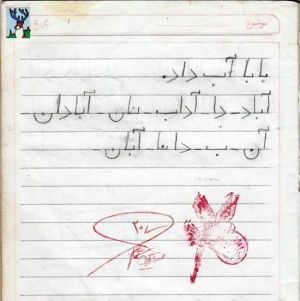 بابا آب داد.
آباد - دا - آداب - نان - آبادان -
آن - ب - دانا - آبان
۲۰